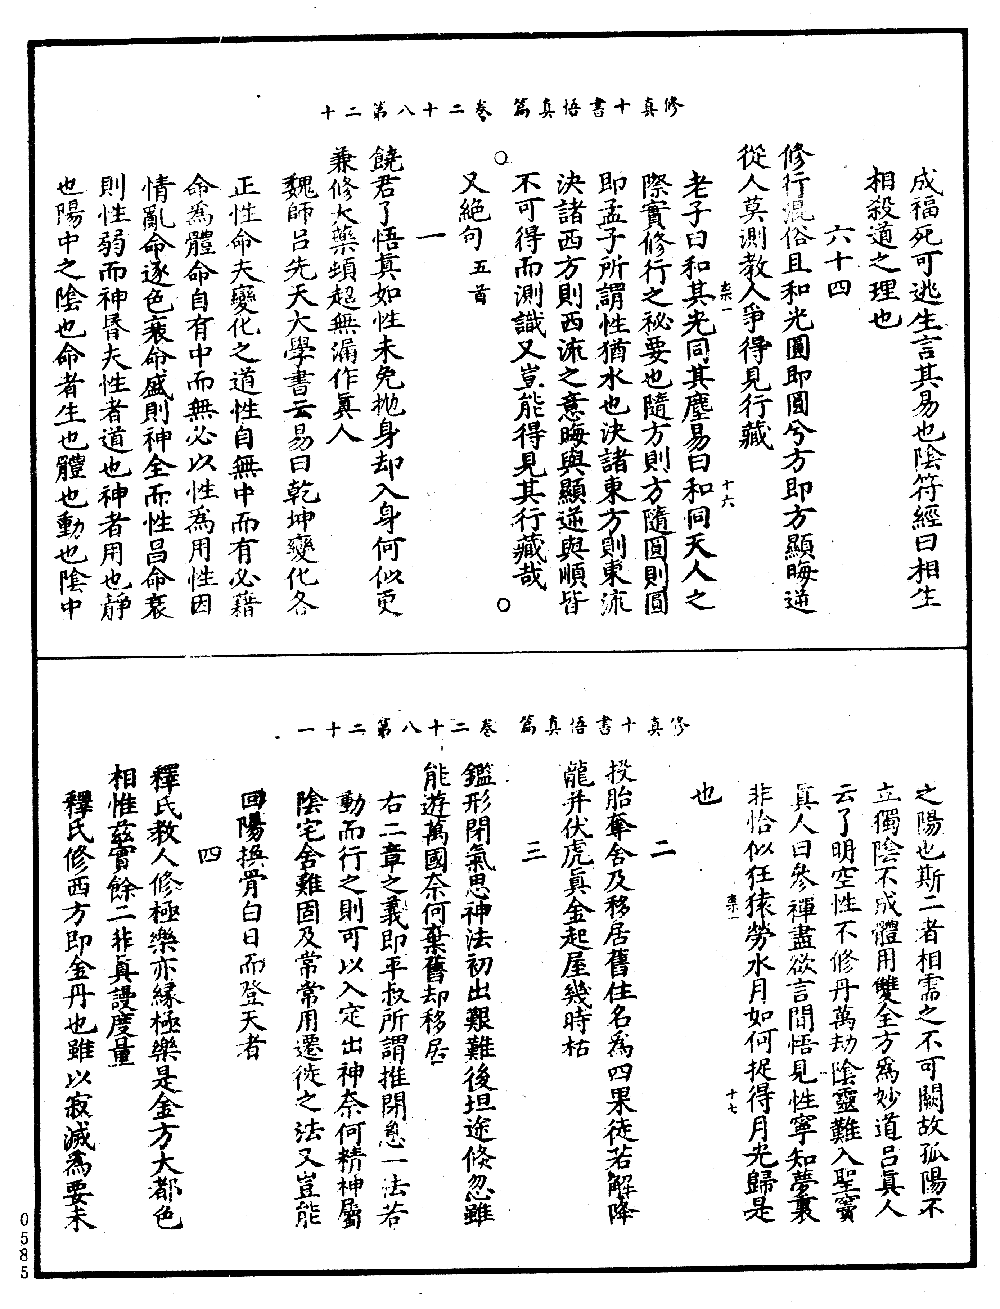 修真十書悟真篇　卷二十八第二十
成福死可逃生言其易也陰符經曰相生
相殺道之理也
六十四
修行混俗且和光圓即圓兮方即方顯晦逆
從人莫測教人爭得見行藏
老子曰和其光同其塵易曰和同天人之
際實修行之秘要也隨方則方隨圓則圓
即孟子所謂性猶水也決諸東方則東流
決諸西方則西流之意晦與顯逆與順皆
不可得而測識又豈能得見其行藏哉
又絕句　五首
一
饒君了悟真如性未免拋身却入身何似更
兼修大藥頓超無漏作真人
魏師呂先天大學書云易曰乾坤變化各
正性命夫變化之道性自無中而有必藉
命為體命自有中而無必以性為用性因
情亂命逐色衰命盛則神全而性昌命衰
則性弱而神昬夫性者道也神者用也靜
也陽中之陰也命者生也體也動也陰中
柰一
十六
修真十書悟真篇　卷二十八第二十一
之陽也斯二者相需之不可闕故孤陽不
立獨陰不成體用雙全方為妙道呂真人
云了明空性不修丹萬劫陰靈難入聖竇
真人曰參禪盡欲言間悟見性寧知夢裏
非恰似狂猿勞水月如何捉得月光歸是
也
二
投胎奪舍及移居舊住名為四果徒若解降
龍并伏虎真金起屋幾時枯
三
鑑形閉氣思神法初出艱難後坦途倏忽雖
能遊萬國奈何棄舊却移居
右二章之義即平叔所謂推閉息一法若
動而行之則可以入定出神奈何精神屬
陰宅舍難固及常常用遷徙之法又豈能
回陽換骨白日而登天者
四
釋氏教人修極樂亦緣極樂是金方大都色
相惟茲實餘二非真謾度量
釋氏修西方即金丹也雖以寂滅為要未
柰一
十七
0585